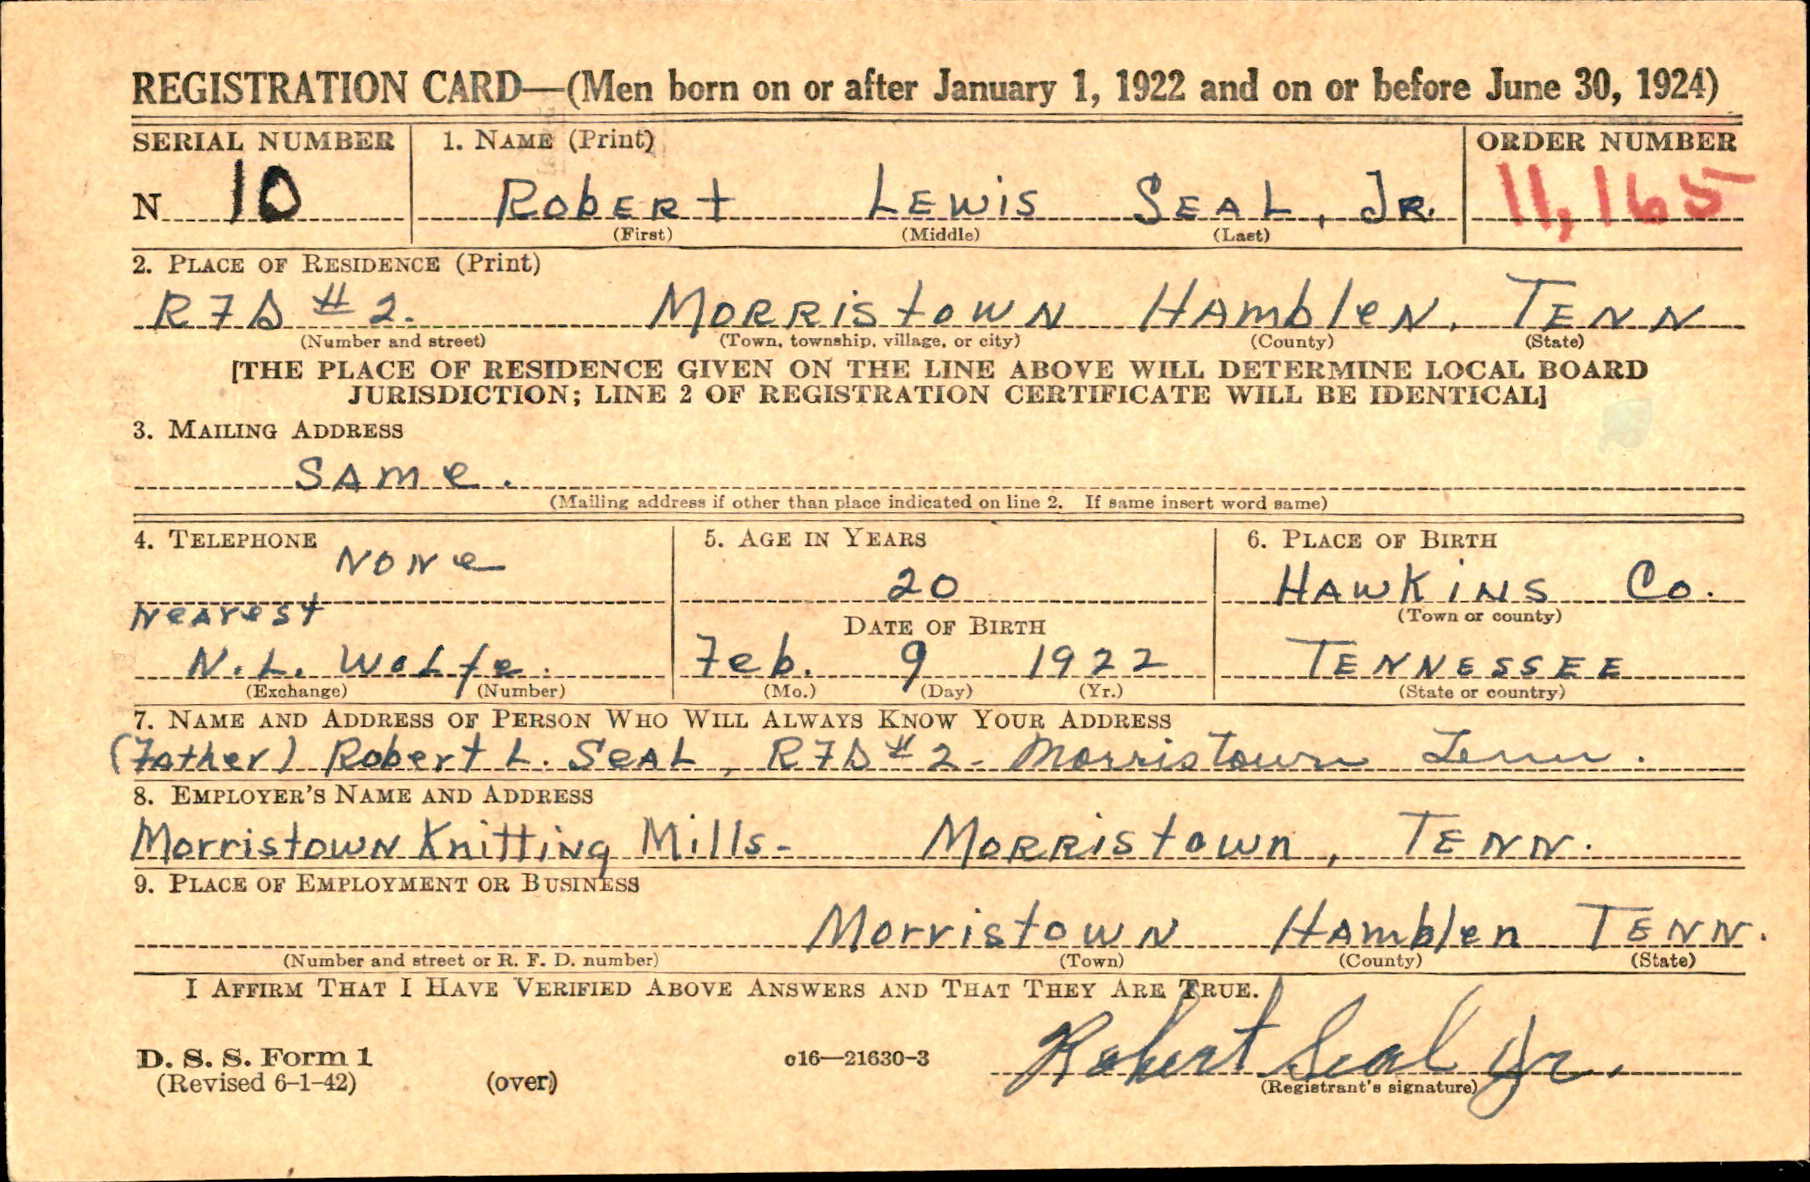 REGISTRATION CARD—(Men born on or after January 1, 1922 and on or before June 30, 1924)
SERIAL NUMBER 1. NAME (Print) ORDER NUMBER
N 10 RobERt LEWiS SEAL, JR. 11,165
(First) (Middle) (Last)
2. PLACE OF RESIDENCE (Print)
RFD #2. MORRiStOWN HAmbleN, TENN
(Number and street) (Town, township, village, or city) (County) (State)
[THE PLACE OF RESIDENCE GIVEN ON THE LINE ABOVE WILL DETERMINE LOCAL BOARD
JURISDICTION; LINE 2 OF REGISTRATION CERTIFICATE WILL BE IDENTICAL]
3. MAILING ADDRESS
SAme.
(Mailing address if other than place indicated on line 2. If same insert word same)
4. TELEPHONE 5. AGE IN YEARS 6. PLACE OF BIRTH
NONe 20 HAWKiNS Co.
NeAreSt DATE OF BIRTH (Town or county)
N.L. WoLfe. Feb. 9 1922 TENNESSEE
(Exchange) (Number) (Mo.) (Day) (Yr.) (State or country)
7. NAME AND ADDRESS OF PERSON WHO WILL ALWAYS KNOW YOUR ADDRESS
(Father) Robert L. SeAL, RFD #2- Morristown Tenn.
8. EMPLOYER'S NAME AND ADDRESS
MorristOWN Knitting Mills- MORRiStown, TENN.
9. PLACE OF EMPLOYMENT OR BUSINESS
MorristOWN HAmblen TENN.
(Number and street or R. F. D. number) (Town) (County) (State)
I AFFIRM THAT I HAVE VERIFIED ABOVE ANSWERS AND THAT THEY ARE TRUE.
D. S. S. Form 1 c16—21630-3 Robert Seal Jr.
(Revised 6-1-42) (over) (Registrant's signature)